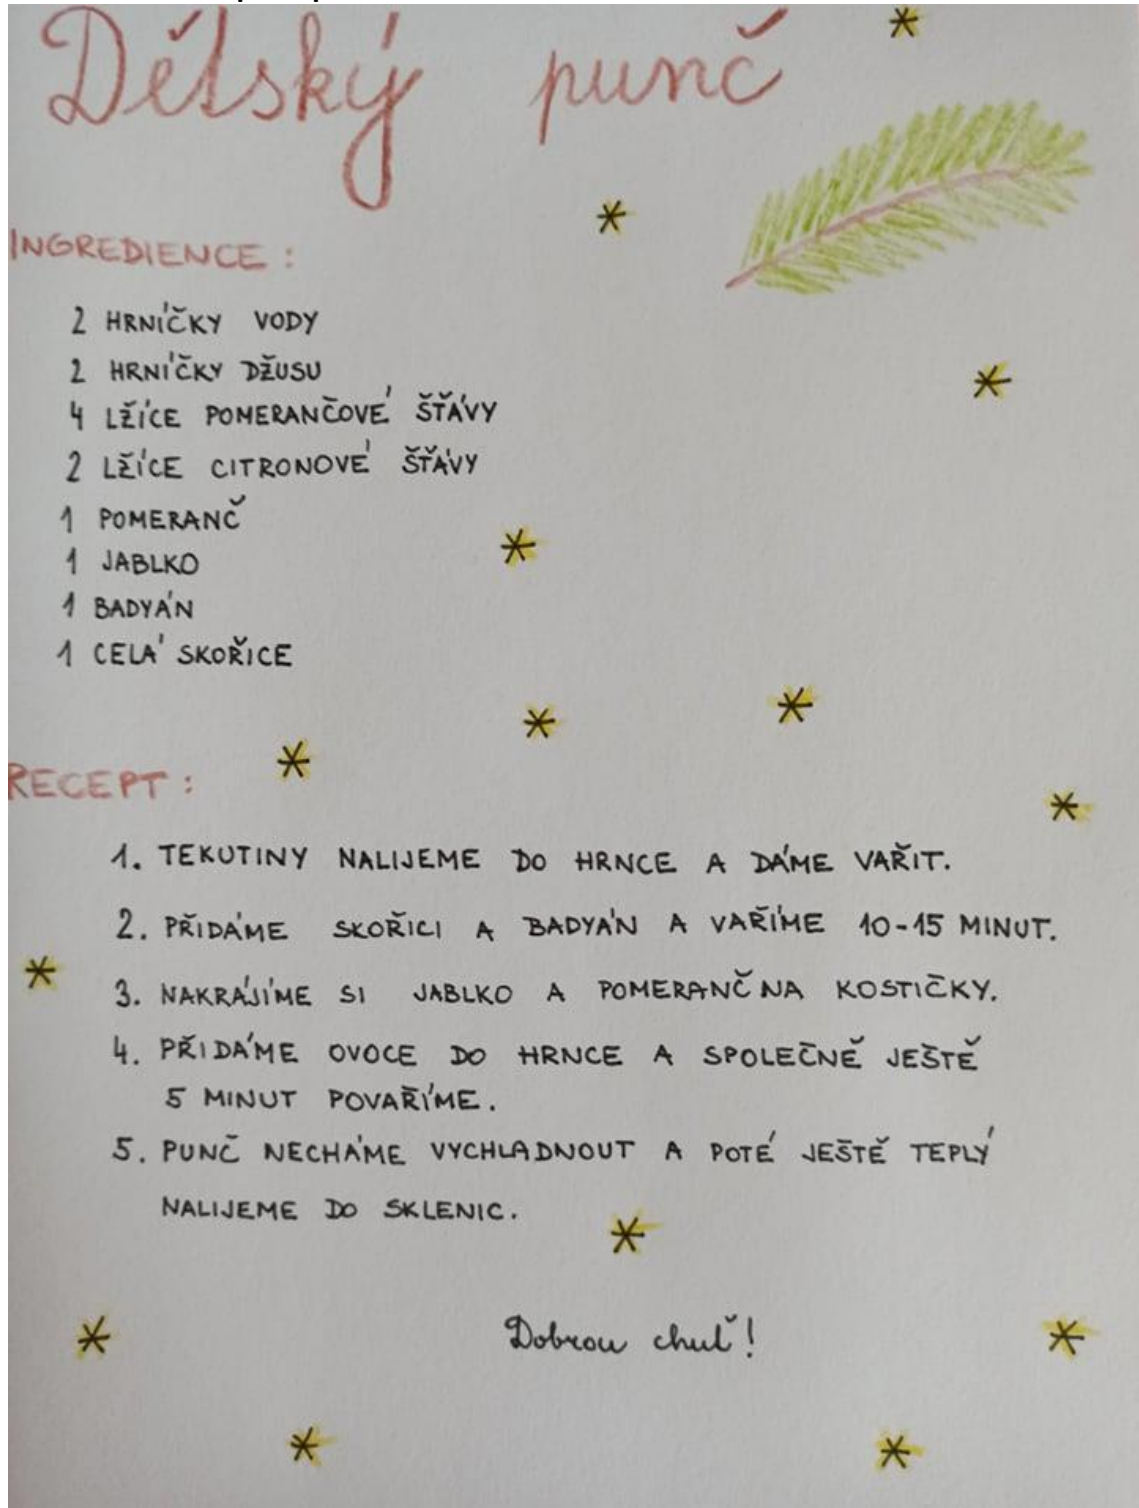 Dětský punč
INGREDIENCE:
2 HRNÍČKY VODY
2 HRNÍČKY DŽUSU
4 LŽÍCE POMERANČOVÉ ŠŤÁVY
2 LŽÍCE CITRONOVÉ ŠŤÁVY
1 POMERANČ
1 JABLKO
1 BADYÁN
1 CELÁ SKOŘICE
RECEPT:
1. TEKUTINY NALIJEME DO HRNCE A DÁME VAŘIT.
2. PŘIDÁME SKOŘICI A BADYÁN A VAŘÍME 10-15 MINUT.
3. NAKRÁJÍME SI JABLKO A POMERANČ NA KOSTIČKY.
4. PŘIDÁME OVOCE DO HRNCE A SPOLEČNĚ JEŠTĚ
5 MINUT POVAŘÍME.
5. PUNČ NECHÁME VYCHLADNOUT A POTÉ JEŠTĚ TEPLÝ
NALIJEME DO SKLENIC.
Dobrou chuť!